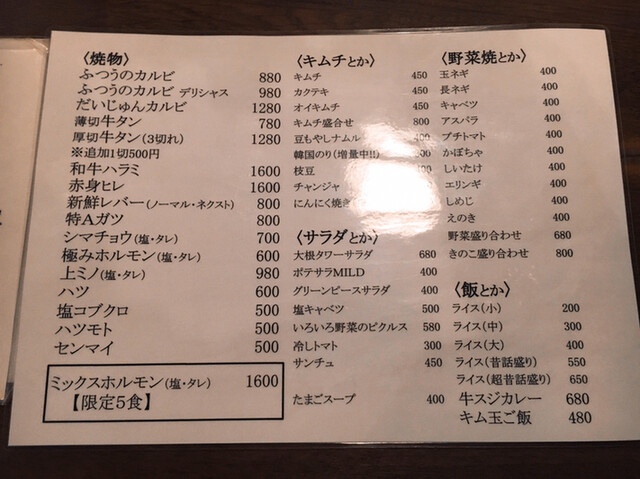 〈焼物〉
ふつうのカルビ 880
ふつうのカルビ デリシャス 980
だいじゅんカルビ 1280
薄切牛タン 780
厚切牛タン(3切れ) 1280
※追加1切500円
和牛ハラミ 1600
赤身ヒレ 1600
新鮮レバー(ノーマル・ネクスト) 800
特Aガツ 800
シマチョウ(塩・タレ) 700
極みホルモン(塩・タレ) 600
上ミノ(塩・タレ) 980
ハツ 600
塩コブクロ 500
ハツモト 500
センマイ 500
ミックスホルモン(塩・タレ) 1600
【限定5食】
〈キムチとか〉
キムチ 450
カクテキ 450
オイキムチ 450
キムチ盛合せ 800
豆もやしナムル 400
韓国のり(増量中!!)
枝豆
チャンジャ
にんにく焼き
〈サラダとか〉
大根タワーサラダ 680
ポテサラMILD 400
グリーンピースサラダ 400
塩キャベツ 500
いろいろ野菜のピクルス 580
冷しトマト 300
サンチュ 450
たまごスープ 400
〈野菜焼とか〉
玉ネギ 400
長ネギ 400
キャベツ 400
アスパラ 400
プチトマト 400
かぼちゃ 400
しいたけ 400
エリンギ 400
しめじ 400
えのき 400
野菜盛り合わせ 680
きのこ盛り合わせ 800
〈飯とか〉
ライス(小) 200
ライス(中) 300
ライス(大) 400
ライス(昔話盛り) 550
ライス(超昔話盛り) 650
牛スジカレー 680
キム玉ご飯 480